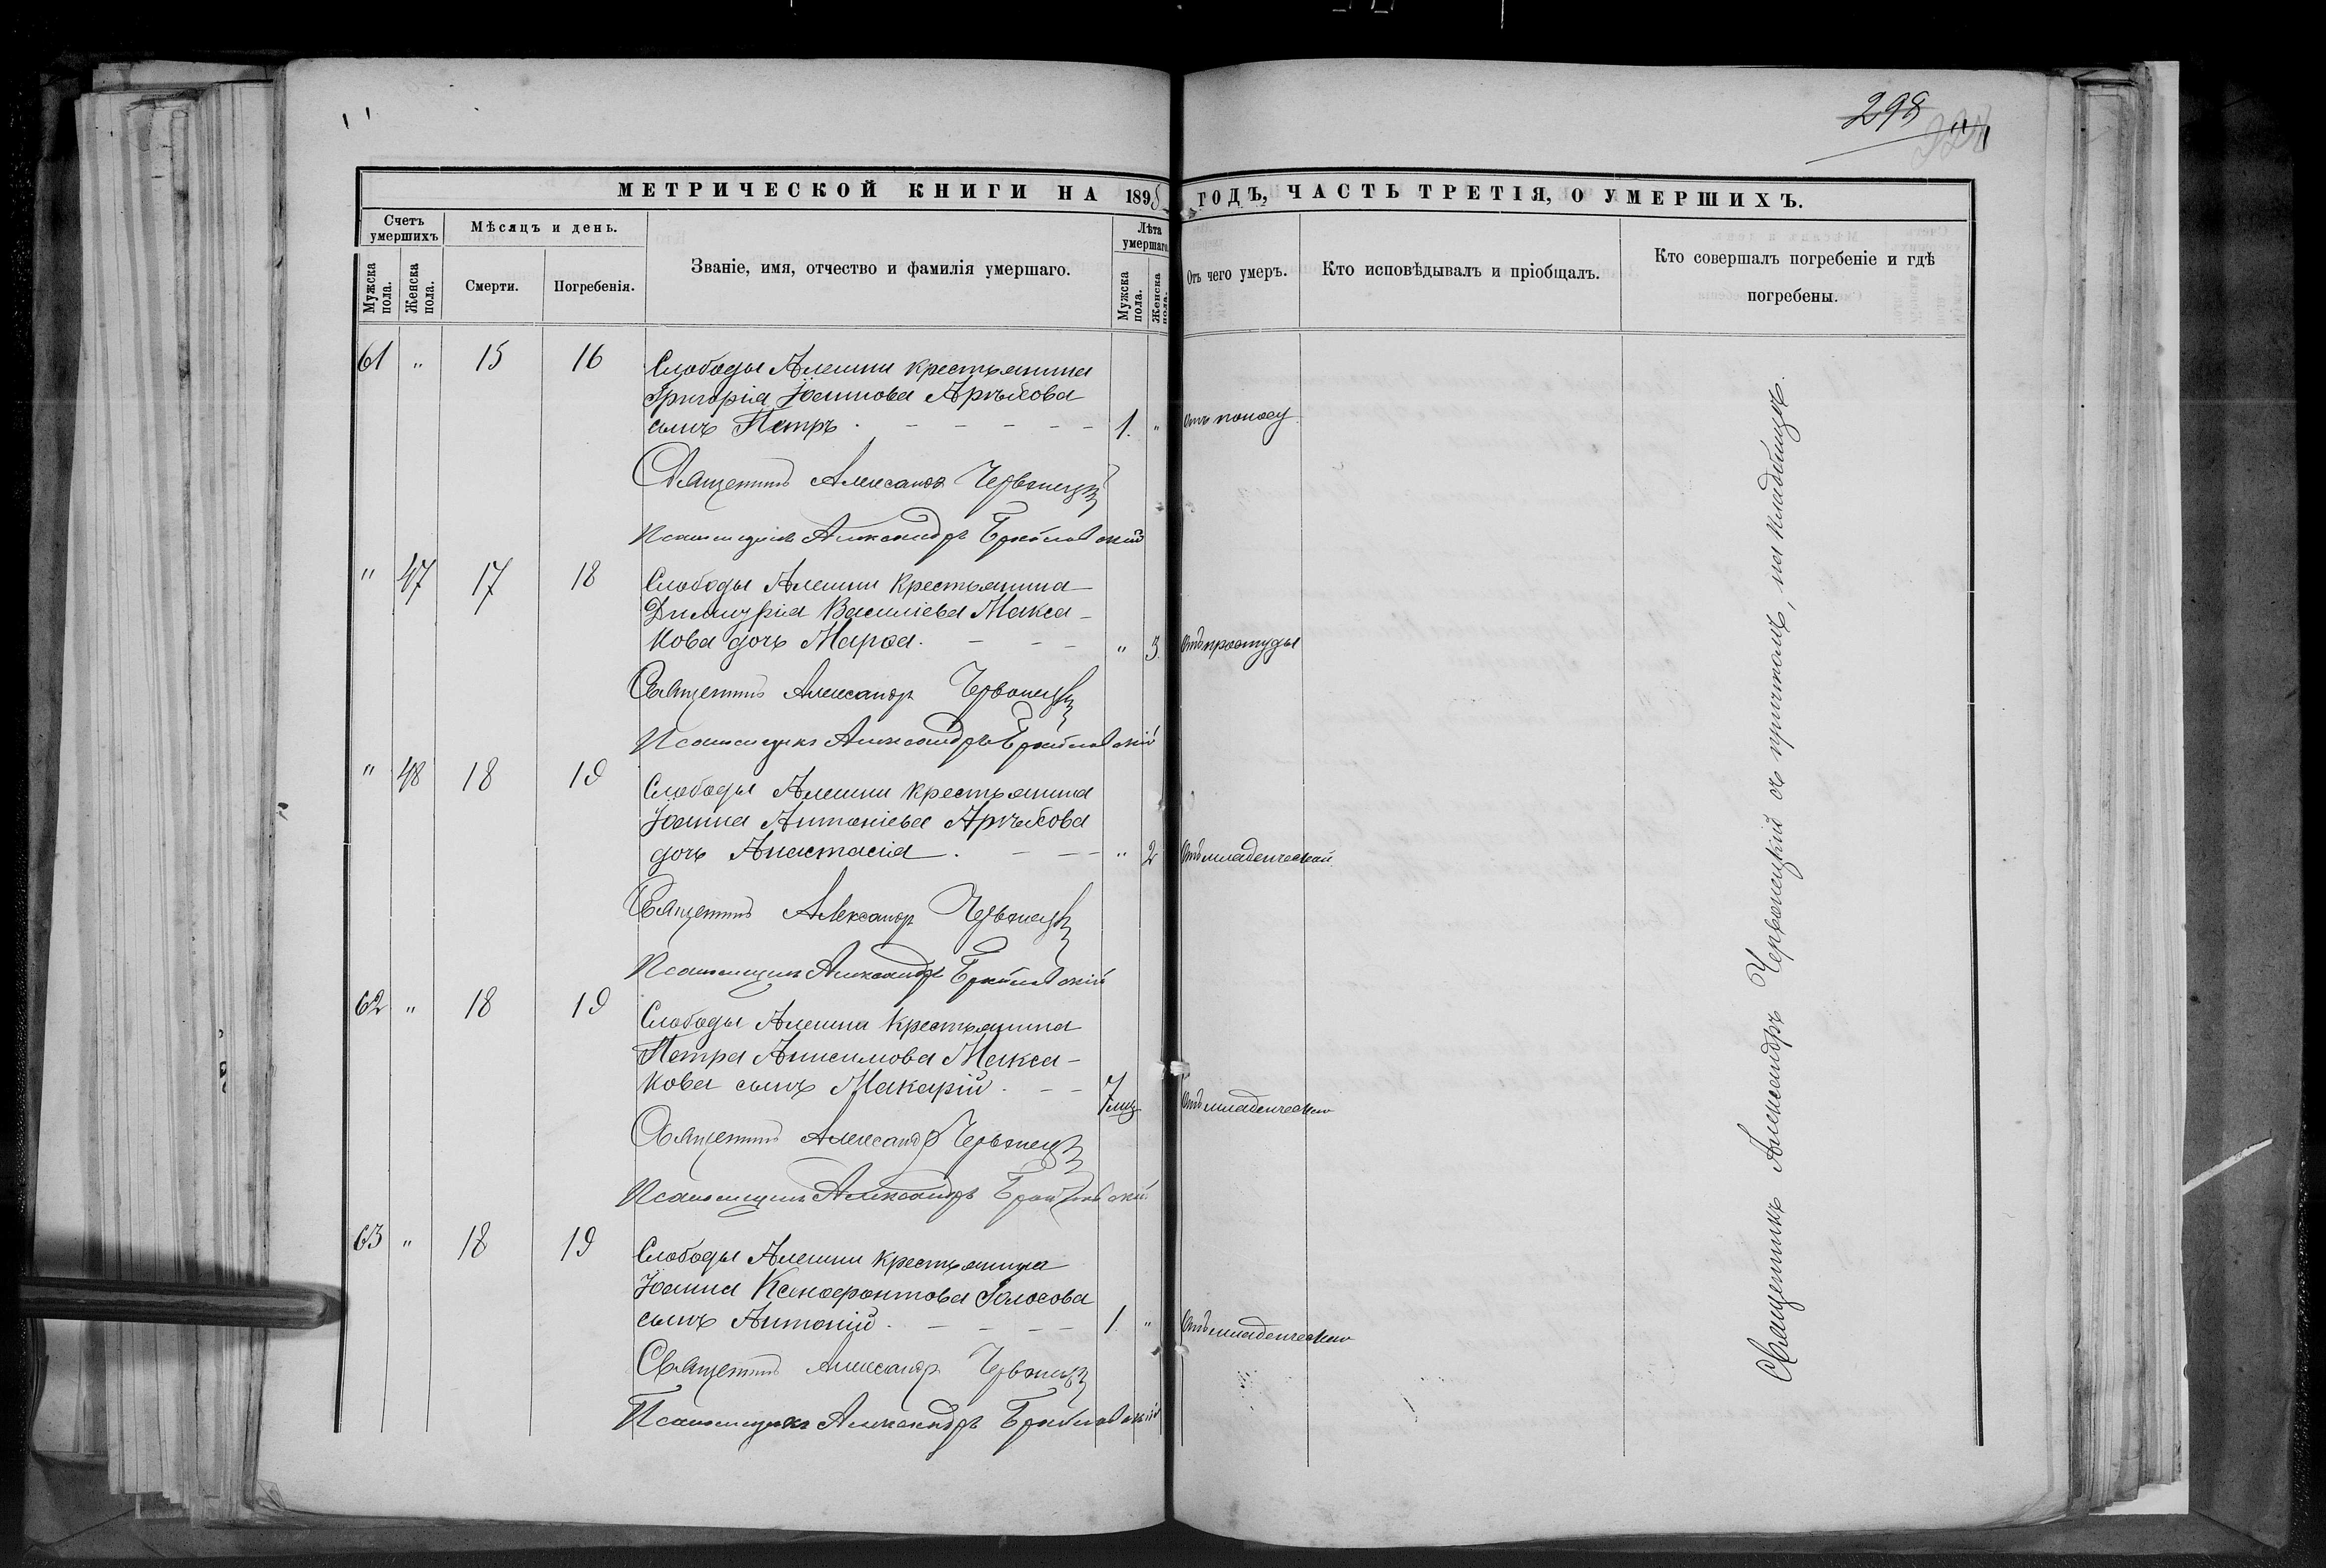 298
МЕТРИЧЕСКОЙ КНИГИ НА 1898 ГОДЪ, ЧАСТЬ ТРЕТІЯ, О УМЕРШИХЪ.
Счетъ умершихъ
Мѣсяцъ и день.
Званіе, имя, отчество и фамилія умершаго.
Лѣта умершаго
Отъ чего умеръ.
Кто исповѣдывалъ и пріобщалъ.
Кто совершалъ погребеніе и гдѣ
погребены.
Мужска пола.
Женска пола.
Смерти.
Погребенія.
Мужска пола.
Женска пола.
61 " 15 16 Слободы Алешни крестьянина
Григорія Іоаннова
сынъ Петръ. 1. " отъ поносу
Священникъ Александръ Червонецкій
Псаломщикъ Александръ
" 47 17 18 Слободы Алешни крестьянина
Димитрія Василіева Макса-
кова дочь Марѳа. " 3. отъ простуды
Священникъ Александръ Червонецкій
Псаломщикъ Александръ
" 48 18 19 Слободы Алешни крестьянина
Іоанна Антоніева
дочь Анастасія. " 2 отъ младенческой
Священникъ Александръ Червонецкій
Псаломщикъ Александръ
62 " 18 19 Слободы Алешни крестьянина
Петра Анисимова Макса-
кова сынъ Макарій. 7 мц. отъ младенческой
Священникъ Александръ Червонецкій
Псаломщикъ Александръ
63 " 18 19 Слободы Алешни крестьянина
Іоанна Ксенофонтова Голосова
сынъ Антоній. 1. " отъ младенческой
Священникъ Александръ Червонецкій
Псаломщикъ Александръ
Священникъ Александръ Червонецкій съ причтомъ, на кладбищѣ.